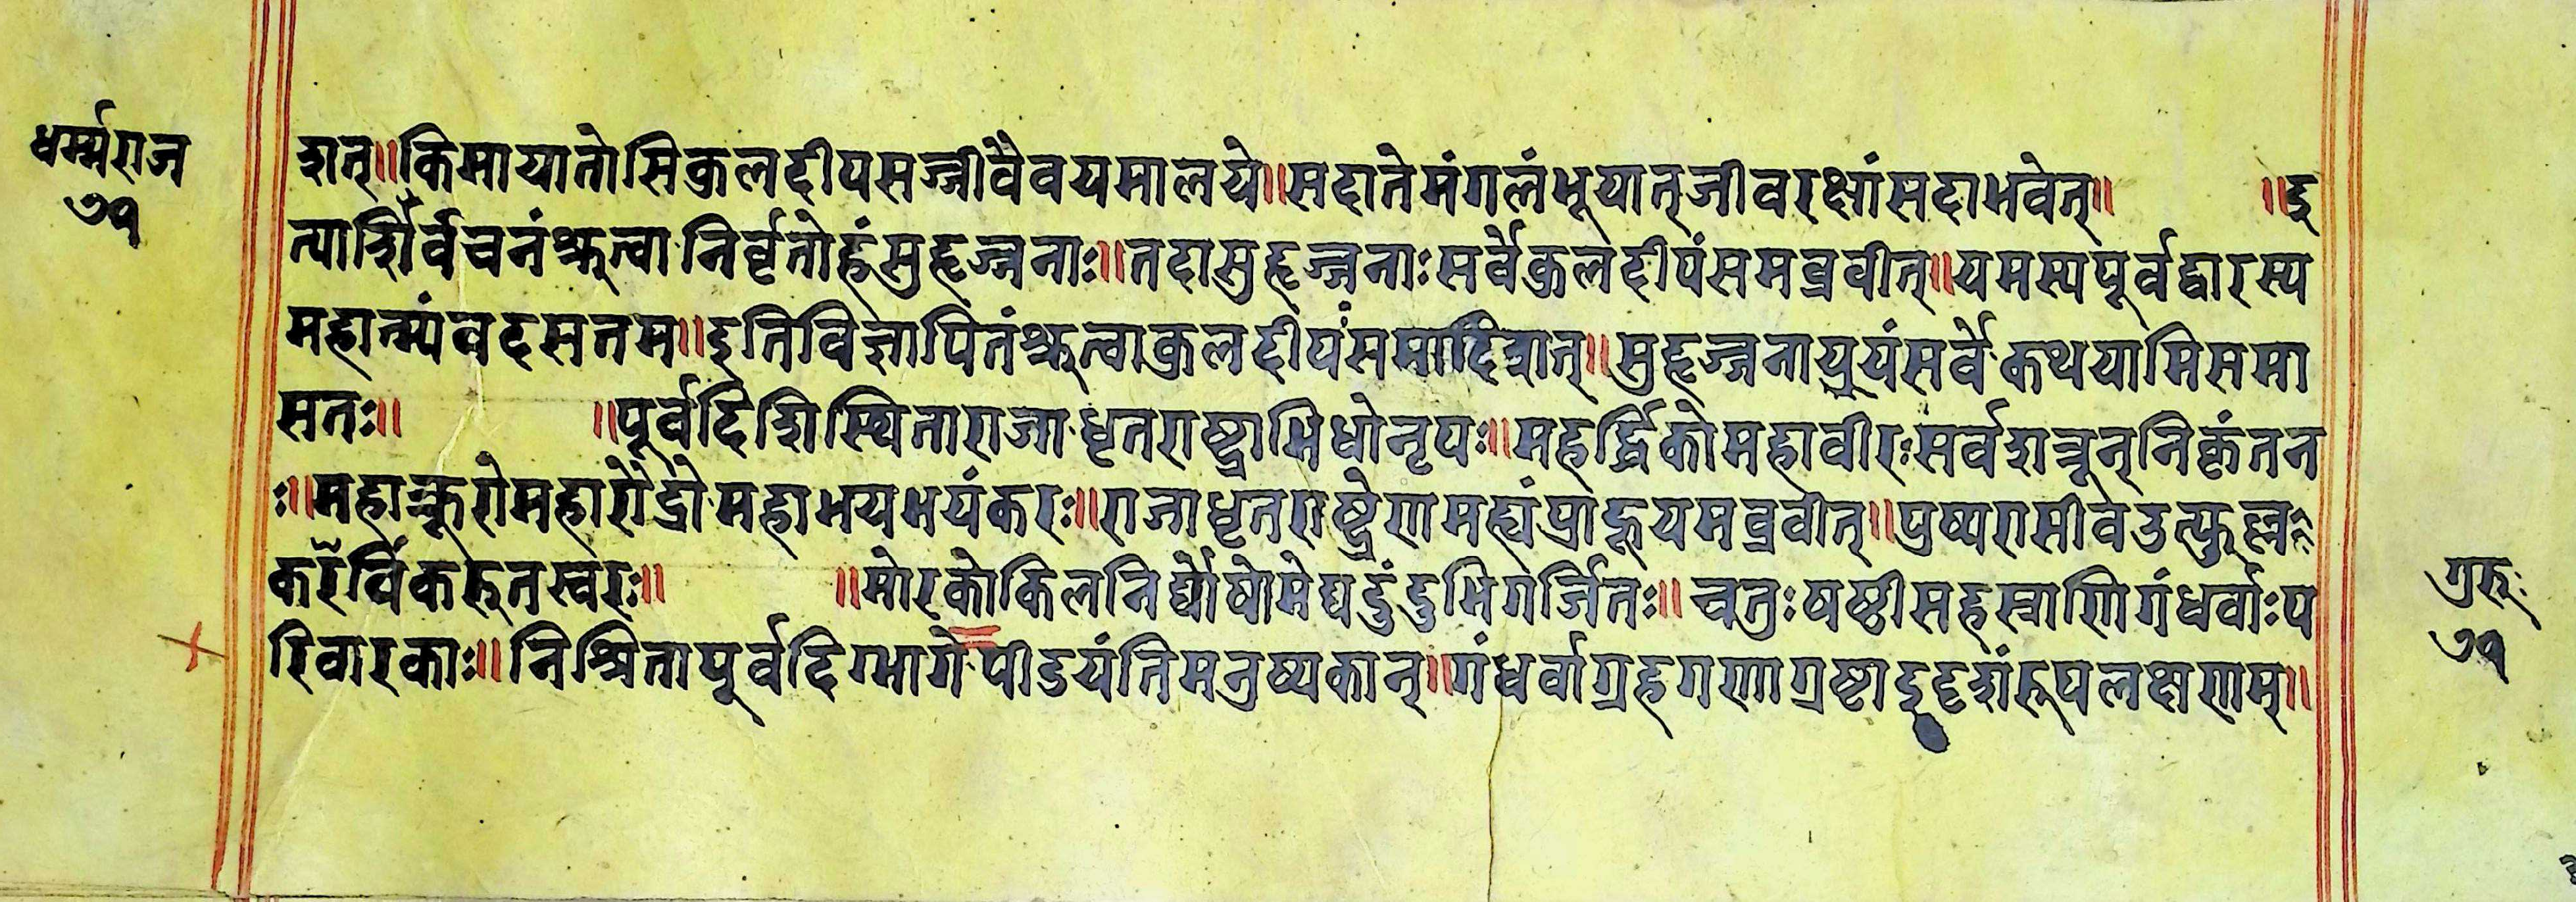 धर्म्मराज
७१
शत्॥किमायातोसिकुलदीपसज्जीवैवयमालये॥सदातेमंगलंभूयात्जीवरक्षांसदाभवेत्॥ ॥इ
त्याशीर्वचनंश्रुत्वानिर्वृतोहंसुहृज्जनाः॥तदासुहृज्जनाःसर्वेकुलदीपंसमब्रवीत्॥यमस्यपूर्वद्वारस्य
महात्म्यंवदसतम॥इतिविज्ञापितंश्रुत्वाकुलदीपंसमादिशत्॥सुहृज्जनायूयंसर्वेकथयामिसमा
सतः॥ ॥पूर्वदिशिस्थितोराजाधृतराष्ट्राभिधोनृपः॥महर्द्धिकोमहावीरःसर्वशत्रून्निकृंतन
ः॥महाक्रूरोमहारौद्रोमहाभयभयंकरः॥राजाधृतराष्ट्रेणमह्यंप्राहूयमब्रवीत्॥पुष्परासीवउत्फुल्लः
करविंकरुतस्वरः॥ ॥मोरकोकिलनिर्घोषोमेघदुंदुभिगर्जितः॥चतुःषष्ठीसहस्राणिगंधर्वाःप
रिवारकाः॥निश्रितापूर्वदिग्भागेपीडयंतिमनुष्यकान्॥गंधर्वाग्रहगणाग्रष्टादृदृशंरूपलक्षणम्॥
गुरुः
७१